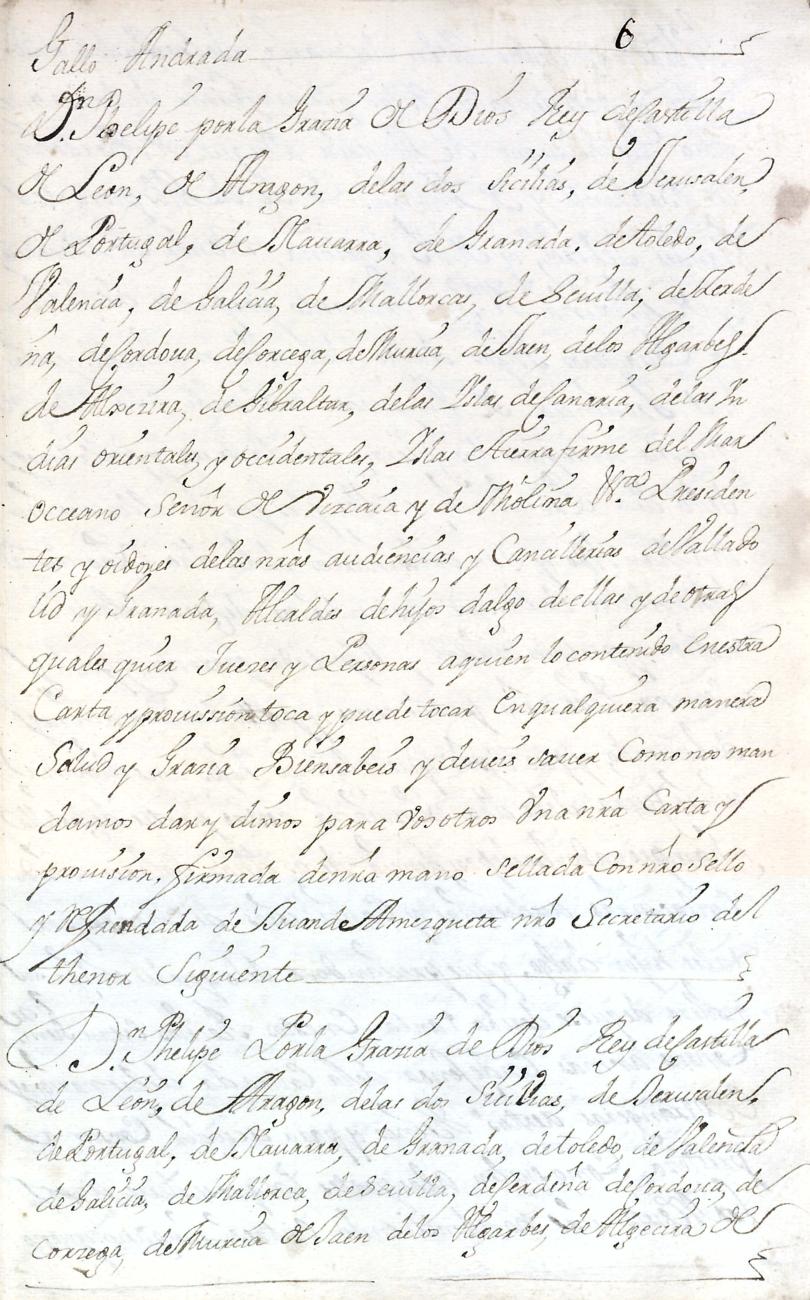 6
Gallo Andrada
Dn. Phelipe por la Grazia de Dios Rey de Castilla
de Leon, de Aragon, de las dos Sicilias, de Jerusalen,
de Portugal, de Nauarra, de Granada, de toledo, de
Valencia, de Galicia, de Mallorcas, de Seuilla, de Zerde
ña, de Cordoua, de Corcega, de Murcia, de Jaen, de los Algarbes,
de Algezira, de Gibraltar, de las Yslas de Canaria, de las Yn
dias orientales y occidentales, Yslas et tierra firme del Mar
occeano Señor de Vizcaia y de Molina &ra. Presiden
tes y oidores de las nras audiencias y Cancillerias de Vallado
lid y Granada, Alcaldes de hijos dalgo de ellas y de otras
quales quier Juezes y Personas a quien lo contenido en estra
Carta y prouission toca y puede tocar en qualquiera manera
Salud y Grazia Bien sabeis y deueis sauer Como nos man
damos dar y dimos para Vosotros Una nra Carta y
prouision, firmada de nra mano sellada Con nro Sello
y Refrendada de Juan de Amezqueta nro Secretario del
thenor Siguiente
Dn. Phelipe Por la Grazia de Dios Rey de Castilla
de Leon, de Aragon, de las dos Sicilias, de Jerusalen,
de Portugal, de Nauarra, de Granada, de toledo, de Valencia
de Galicia, de Mallorca, de Seuilla, de Cerdeña de Cordoua, de
Corzega, de Murcia de Jaen de los Algarbes, de Algecira de